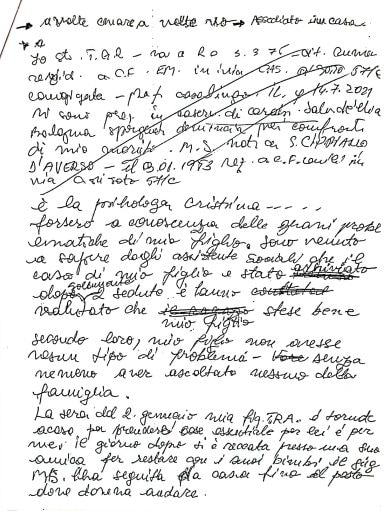 → a volte cenare a volte no → Ascoltato in casa
Io St. T.G.R - na a R o S. 3 75
resid. a C.F. EM. in in via CAS. 57/c
coniugata - prof. casalinga. IL 14.7.2021
Mi sono pres. in caserma di carab. Salvo d'elia
Bologna sporgere denuncia per confronti
di mio marito. M.S. nato a S. CIPRIANO
D'AVERSO - il 03.01.1953 res. a C.F. con lei in
via 57/c
è la psihologa Cristina - - - - -
fossero a conoscenza delle gravi probl
ematiche di mio figlio. sono venuto
a sapere dagli assistente sociali che il
caso di mio figlio è stato archiviato
dopo soltanto 2 sedute è hanno
valutato che mio figlio stesse bene
secondo loro, mio figlio non avesse
nesun tipo di problema - senza
nemeno aver ascoltato nessuno della
famiglia.
La sera del 2. gennaio mia fig. T.R.A. è tornata
acasa, per prendere cose essentiale per lei è per
me, il giorno dopo si è recata presso una sua
amica per restare con i suoi bimbi il sig
M.S. l'ha seguita da casa fino
dove doveva andare.